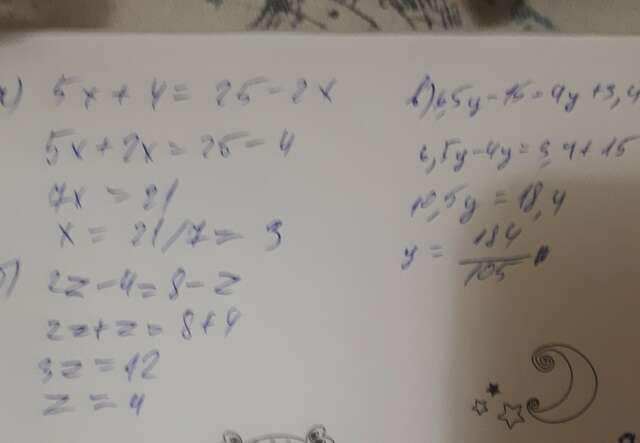 а) 5x + 4 = 25 - 2x
5x + 2x = 25 - 4
7x = 21
x = 21/7 = 3
б) 2z - 4 = 8 - z
2z + z = 8 + 4
3z = 12
z = 4
в) 6,5y - 15 = 4y + 3,4
6,5y - 4y = 3,4 + 15
10,5y = 18,4
y = 184/105